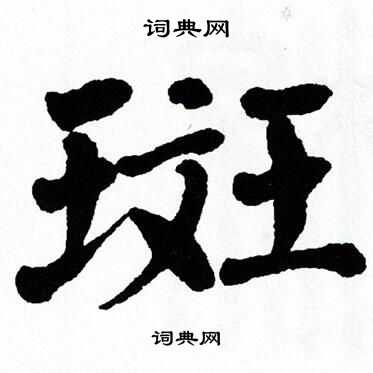 词典网
斑
词典网